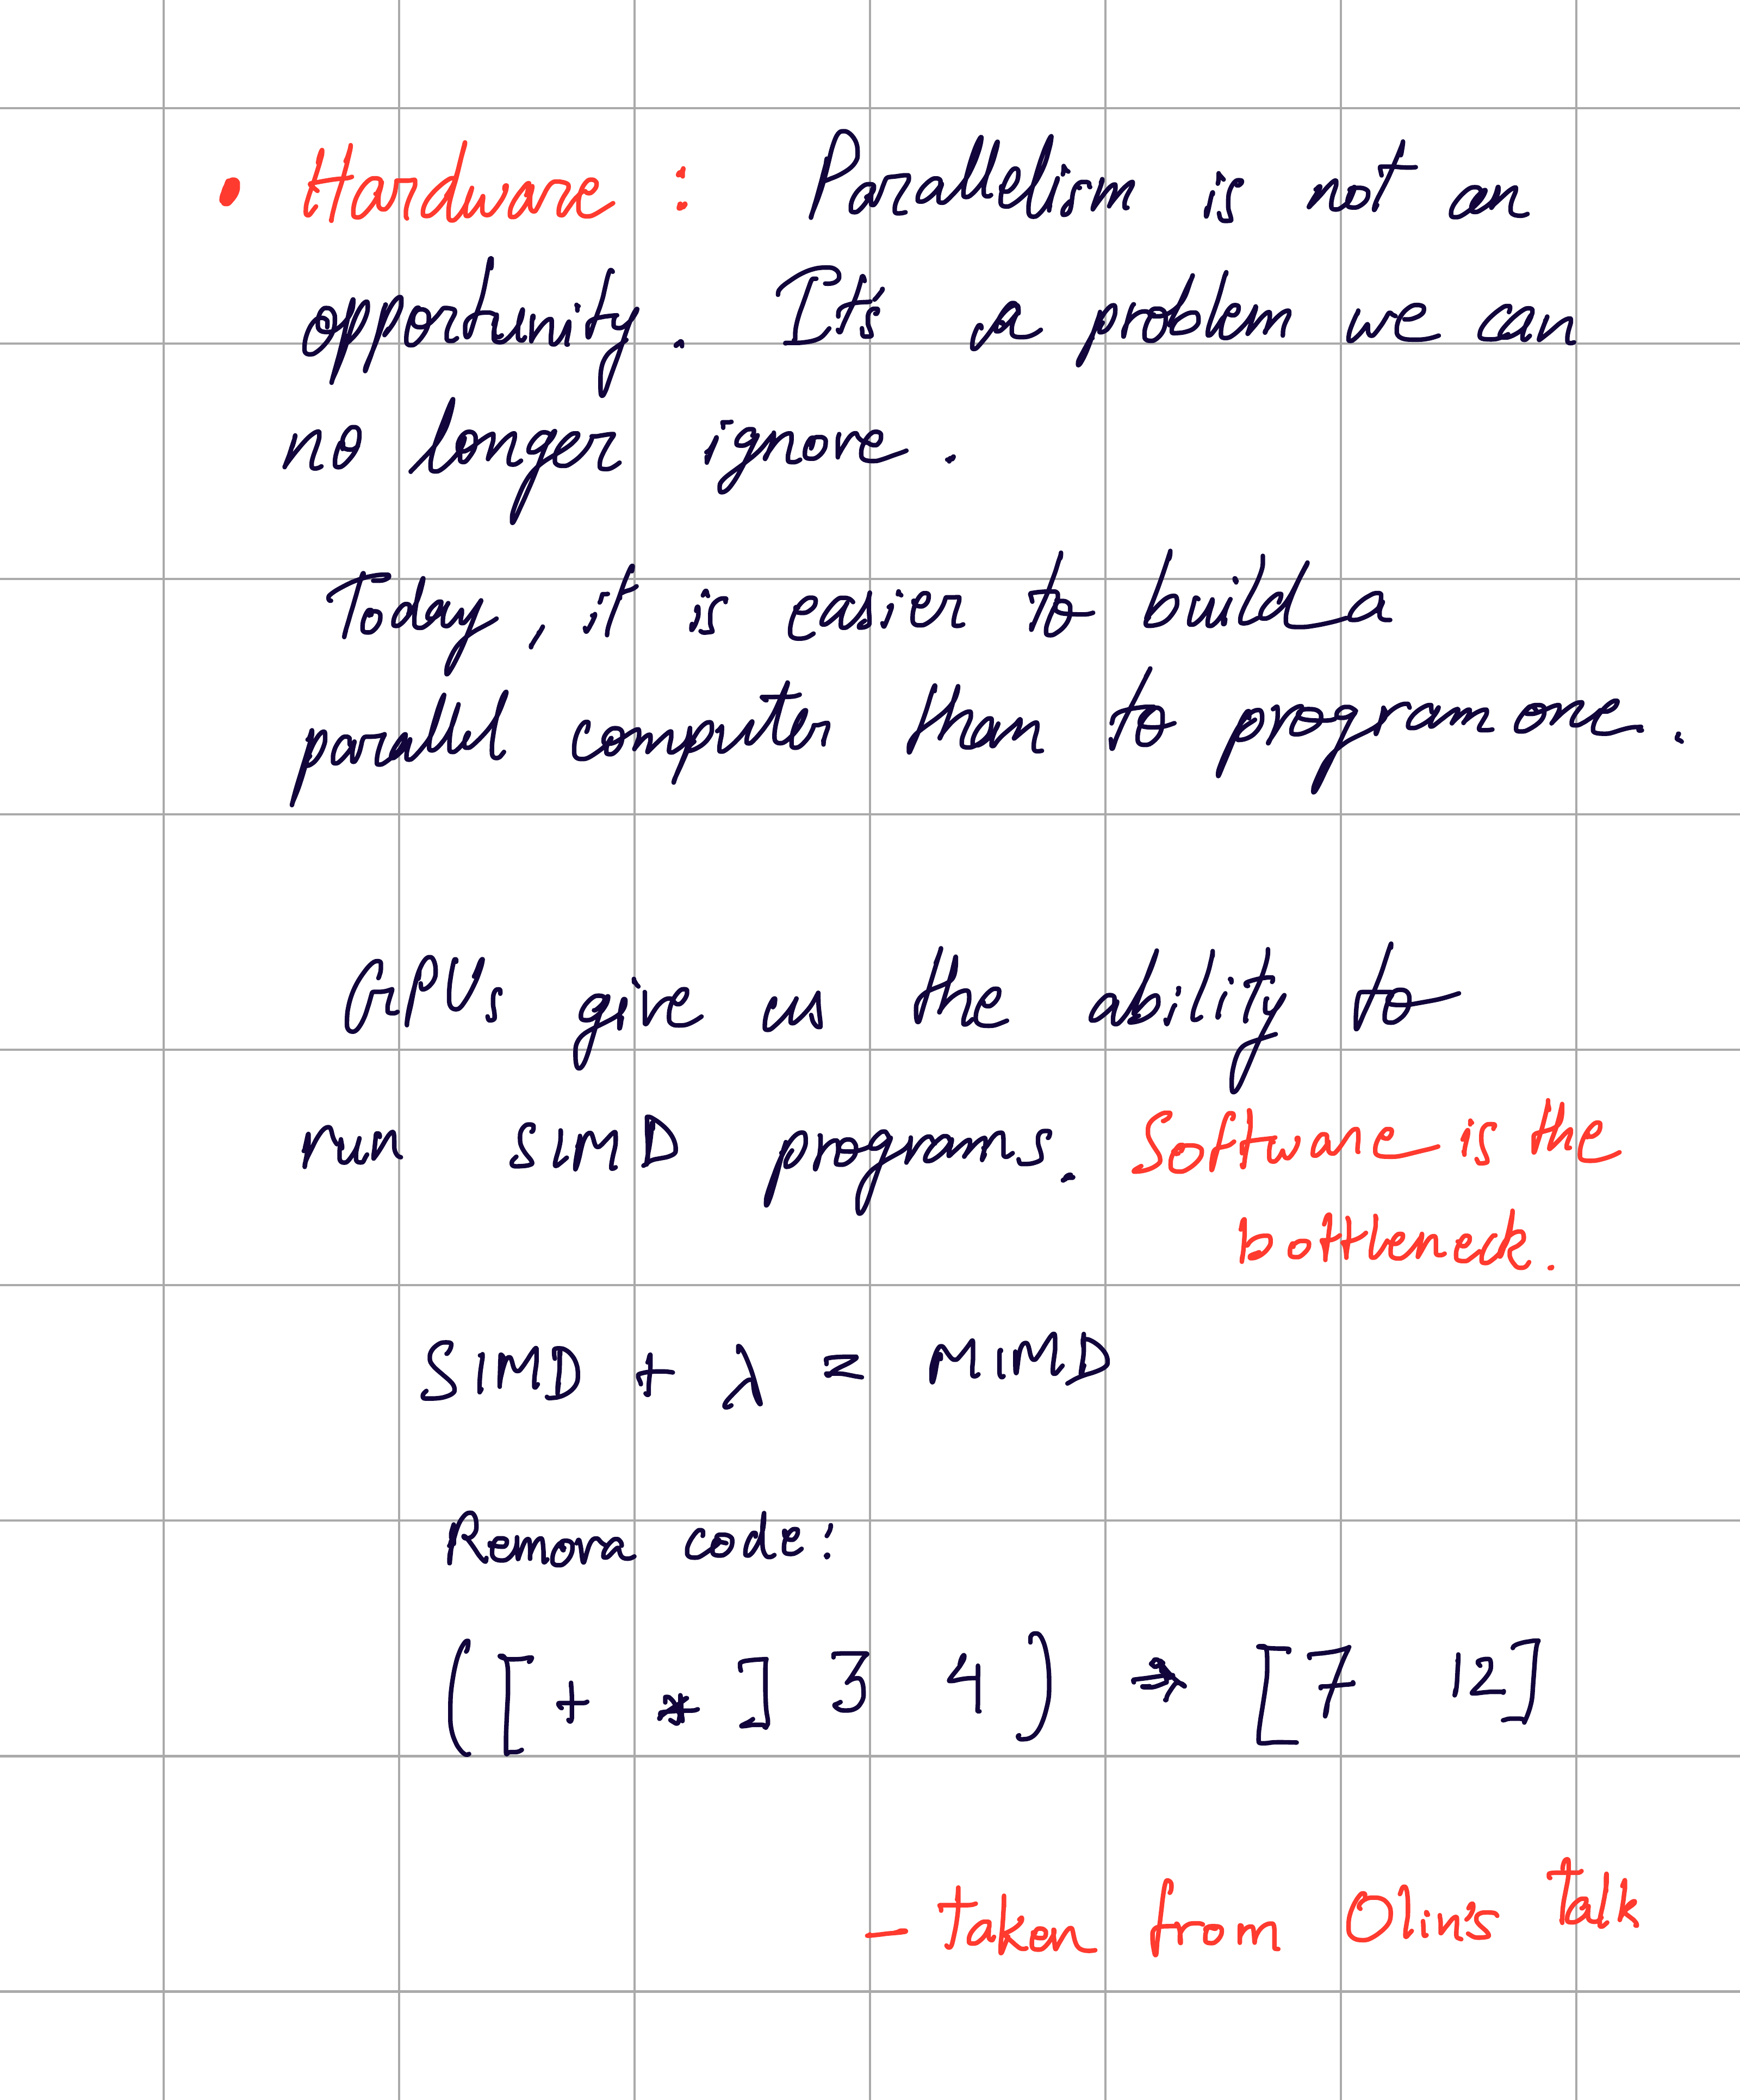 • Hardware : Parallelism is not an
opportunity. It's a problem we can
no longer ignore.
Today, it is easier to build a
parallel computer than to program one.
GPUs give us the ability to
run SIMD programs. Software is the
bottleneck.
SIMD + λ = MIMD
Remora code:
([+ *] 3 4) → [7 12]
- taken from Olin's talk